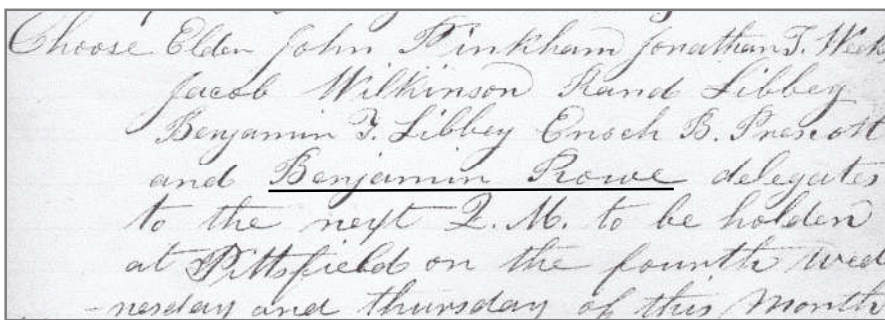 Choose Elder John Pinkham Jonathan T. Weeks
Jacob Wilkinson Rand Libbey
Benjamin T. Libbey Enoch B. Prescott
and Benjamin Rowe delegates
to the next Q. M. to be holden
at Pittsfield on the fourth Wed
-nesday and thursday of this Month